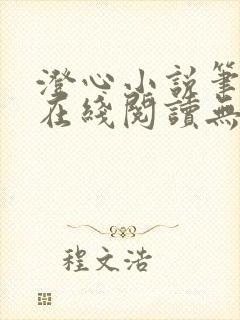 澄心小說筆
在綫閱讀無
程文浩